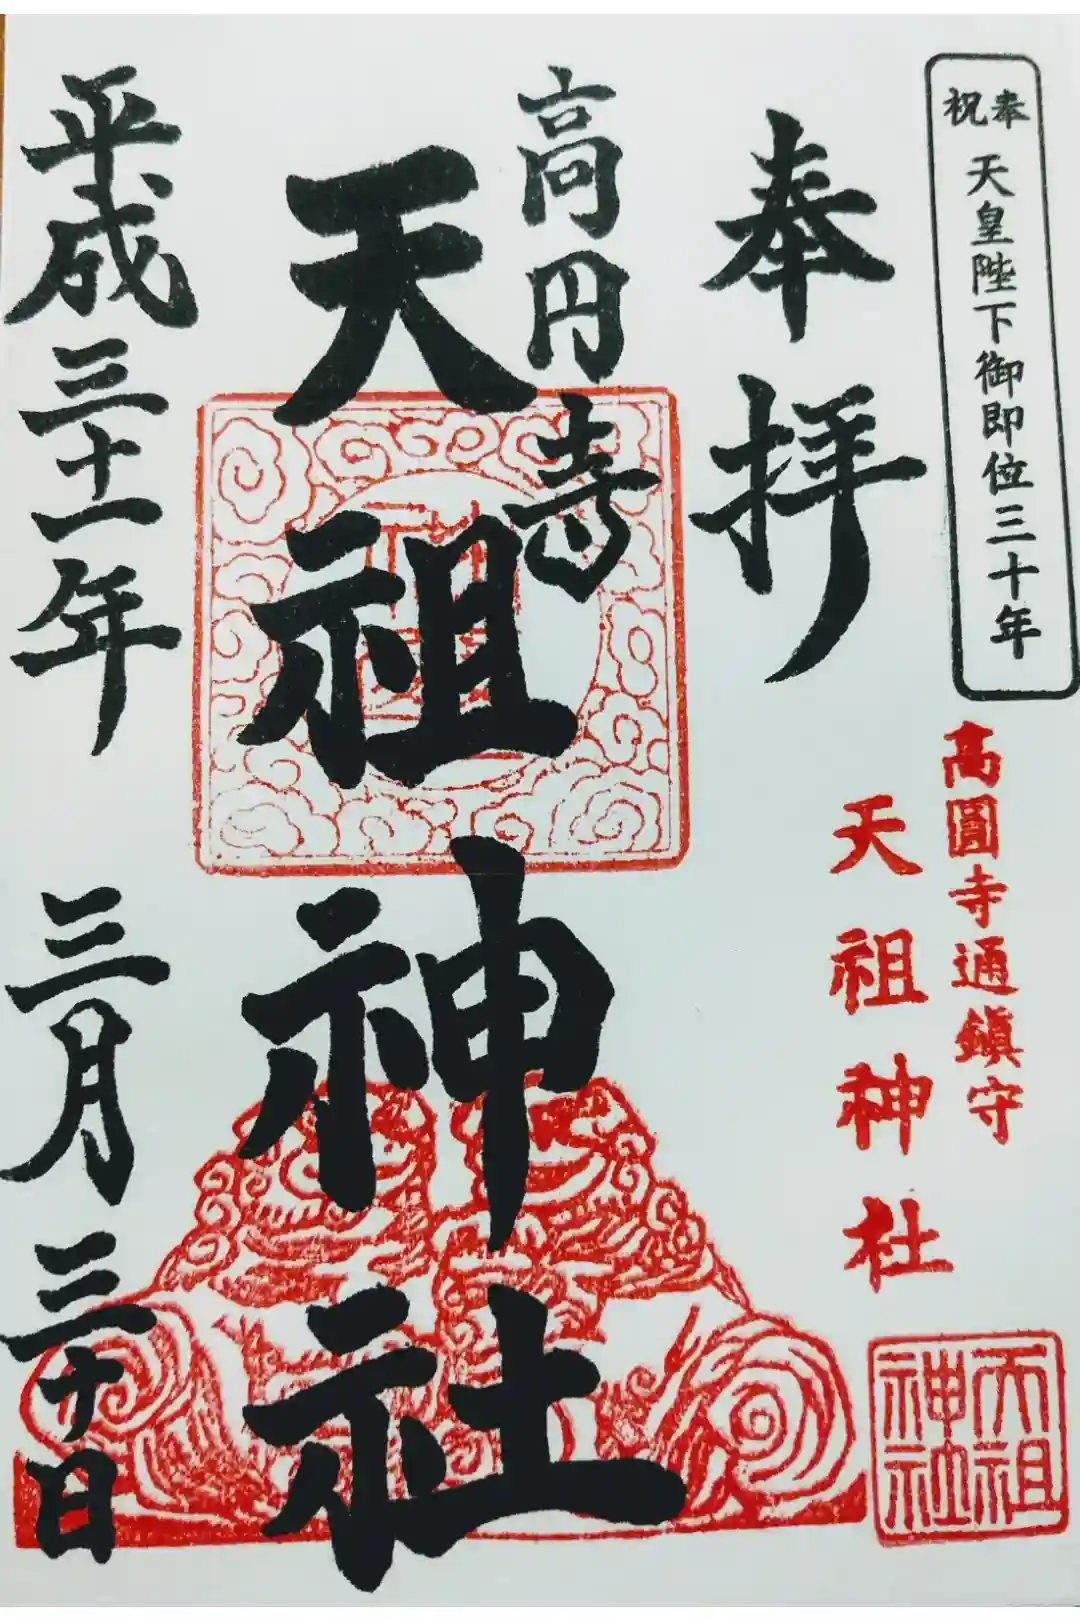 奉祝
天皇陛下御即位三十年
高圓寺通鎮守
天祖神社
天祖
神社
奉拝
高円寺
天祖神社
平成三十一年
三月三十日